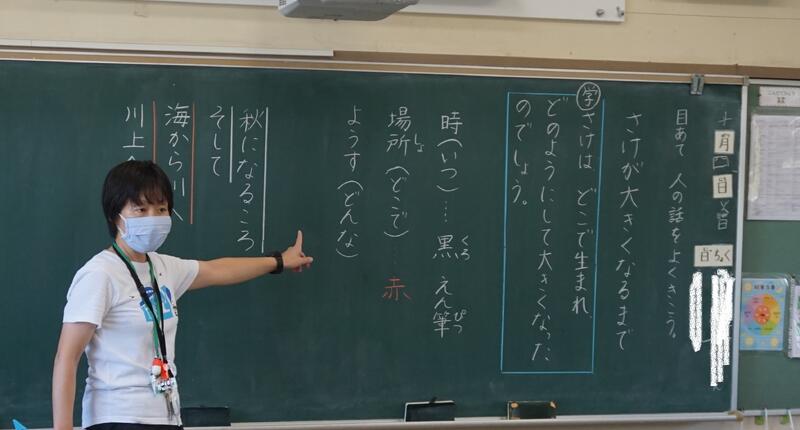 十月
日
日ちょく
目あて 人の話をよくきこう。
さけが大きくなるまで
学
さけは どこで生まれ、
どのようにして大きくなった
のでしょう。
時(いつ)…黒 くろ えん筆 ぴつ
場所(どこで)…赤
しょ
ようす(どんな)
秋になるころ
そして
海から川へ
川上